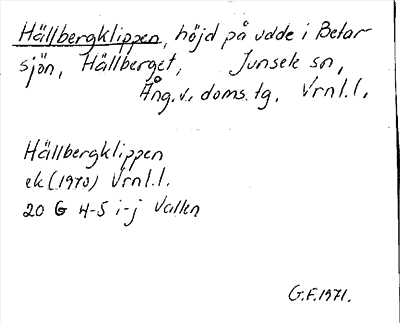 Hällbergklippen, höjd på udde i Betar-
sjön, Hällberget, Junsele sn,
Ång. v. doms. tg. Vrnl.l.
Hällbergklippen
ek (1970) Vrnl.l.
20 G 4-5 i-j Vallen
G.F.1971.